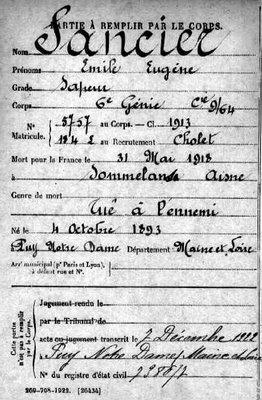 PARTIE À REMPLIR PAR LE CORPS.
Nom Sancier
Prénoms Emile Eugène
Grade Sapeur
Corps 6e Génie Cie 9/64
N° 5757 au Corps. — Cl. 1913
Matricule. 1842 au Recrutement Cholet
Mort pour la France le 31 Mai 1918
à Sommelans Aisne
Genre de mort
Tué à l'ennemi
Né le 4 Octobre 1893
à Puy Notre Dame Département Maine et Loire
Arr' municipal (pr Paris et Lyon),
à défaut rue et N°.
Cette partie
n'est pas à remplir
par le Corps.
Jugement rendu le
par le Tribunal de
acte ou jugement transcrit le 7 Décembre
Puy Notre Dame, Maine et Loire
N° du registre d'état civil
269-708-1922. [26434]